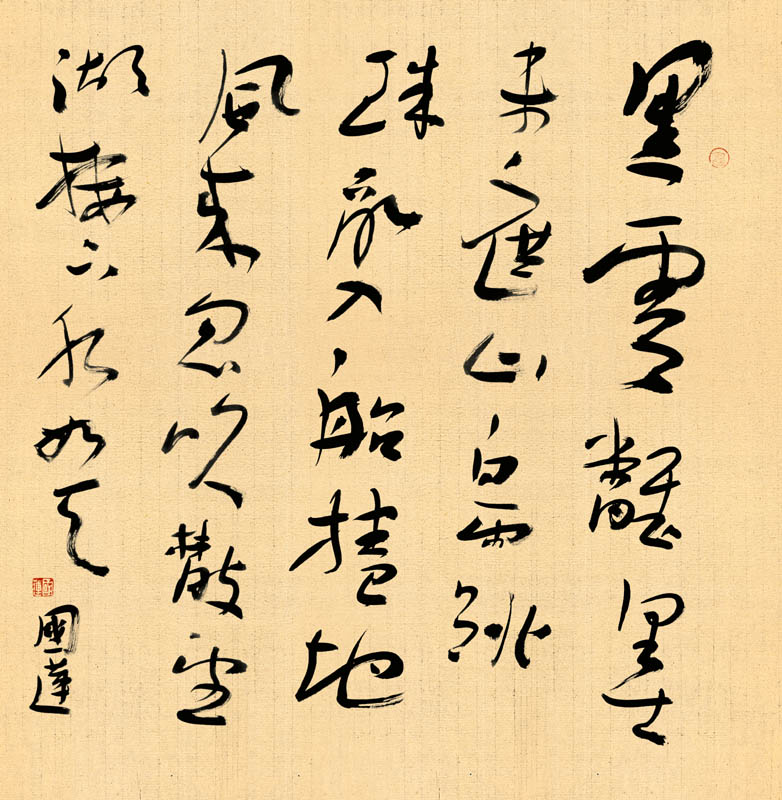 黑雲飜墨
未遮山白雨跳
珠亂入船捲地
風来忽吹散望
湖樓下水如天
國